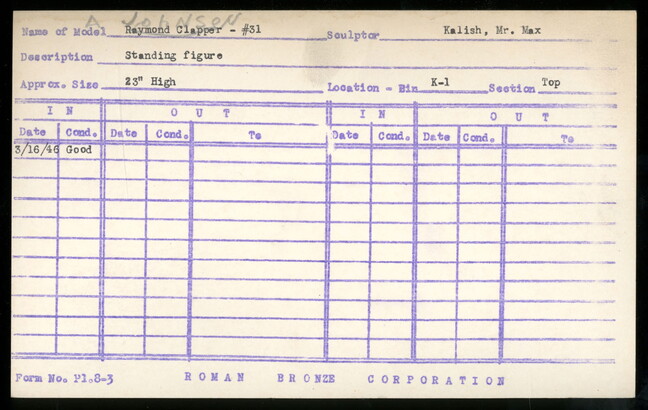 A JOHNSON
Name of Model Raymond Clapper - #31 Sculptor Kalish, Mr. Max
Description Standing figure
Approx. Size 23" High Location - Bin K-1 Section Top
I N O U T I N O U T
Date Cond. Date Cond. To Date Cond. Date Cond. To
3/16/46 Good
Form No. P1.8-3 ROMAN BRONZE CORPORATION